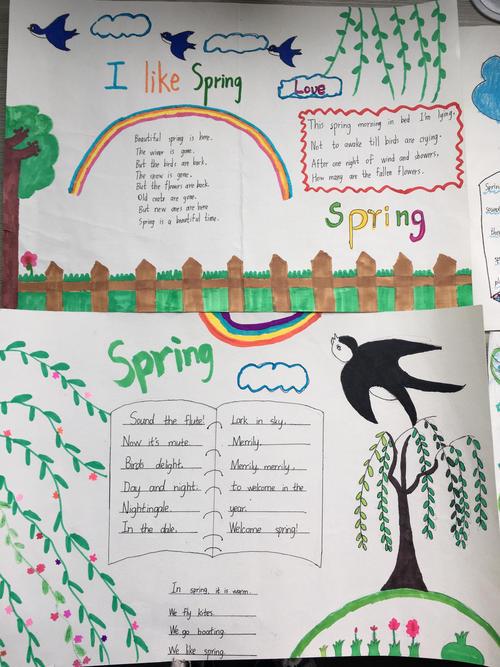 I like Spring
Love
Beautiful spring is here.
The winter is gone.
But the birds are back.
The snow is gone.
But the flowers are back.
Old coats are gone.
But new ones are here
Spring is a beautiful time.
This spring morning in bed I'm lying,
Not to awake till birds are crying.
After one night of wind and showers,
How many are the fallen flowers.
Spring
Spring
Sound the flute!
Now it's mute.
Birds delight.
Day and night.
Nightingale.
In the dale.
Lark in sky.
Merrily.
Merrily merrily,
to welcome in the
year.
Welcome spring!
In spring, it is warm.
We fly kites.
We go boating.
We like spring.